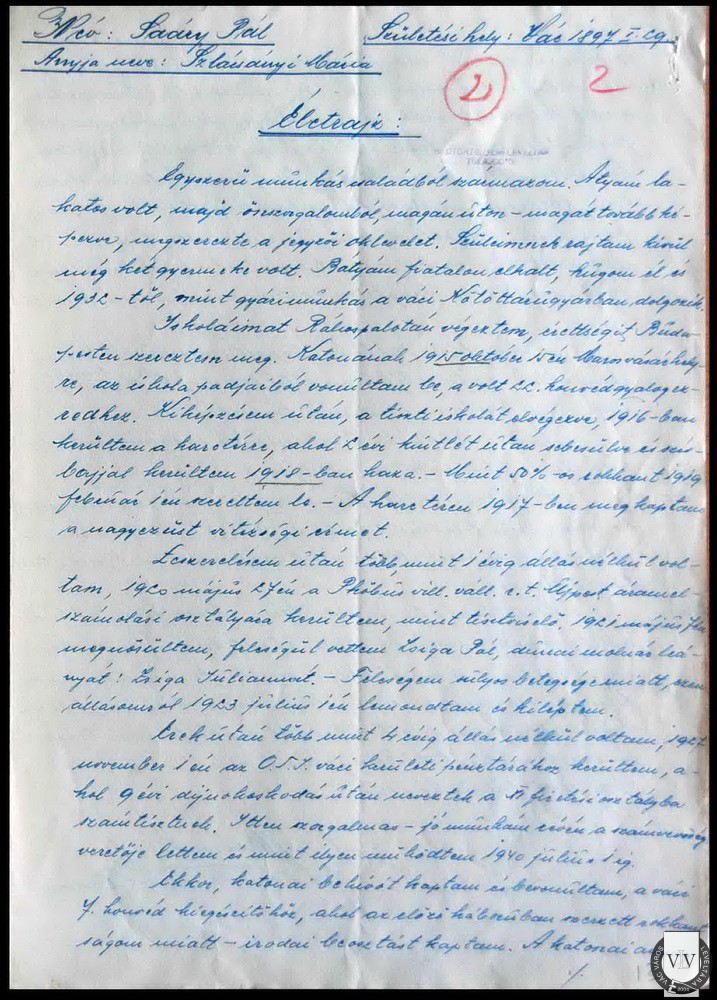 Név: Saáry Pál Születési hely: Vác 1897 I. 29.
Anyja neve: Szlásányi Mária
2 2
Életrajz:
Egyszerű munkás családból származom. Atyám la-
katos volt, majd önszorgalomból, magán úton – magát tovább ké-
pezve, megszerezte a jegyzői oklevelet. Szüleimnek rajtam kívül
még két gyermeke volt. Bátyám fiatalon elhalt, húgom él és
1932-től, mint gyári munkás a váci Kötöttárúgyárban dolgozik.
Iskoláimat Rákospalotán végeztem, érettségit Buda-
pesten szereztem meg. Katonának 1915 október 15én Marosvásárhely-
re, az iskola padjaiból vonultam be, a volt 22. honvéd gyalogez-
redhez. Kiképzésem után, a tiszti iskolát elvégezve, 1916-ban
kerültem a harctérre, ahol 2 évi kintlét után sebesülve és szív-
bajjal kerültem 1918-ban haza. – Mint 50%-os rokkant 1919
február 1én szereltem le. – A harctéren 1917-ben megkaptam
a nagyezüst vitézségi érmet.
Leszerelésem után több mint 1 évig állás nélkül vol-
tam, 1920 május 27én a Phőbus vill. váll. r. t. Ujpest áramel-
számolási osztályára kerültem, mint tisztviselő. 1921 május
megnősültem, feleségül vettem Zsiga Pál, dunai molnár leá-
nyát: Zsiga Juliannát. – Feleségem súlyos betegsége miatt, ezen
állásomról 1923 július 1én lemondtam és kiléptem.
Ezek után több mint 4 évig állás nélkül voltam, 1927
november 1én az O.T.I. váci kerületi pénztárához kerültem, a-
hol 9 évi díjnokoskodás után neveztek a fizetési osztályba
számtisztnek. Itten szorgalmas – jó munkám révén a számvevőség
vezetője lettem és mint ilyen működtem 1940 július 1ig.
Ekkor, katonai behívót kaptam és bevonultam, a váci
7. honvéd kiegészítőhöz, ahol az előző háborúban szerzett rokkant-
ságom miatt – irodai beosztást kaptam. A katonai
./.
VÁC VÁROS LEVÉLTÁRA
VVL